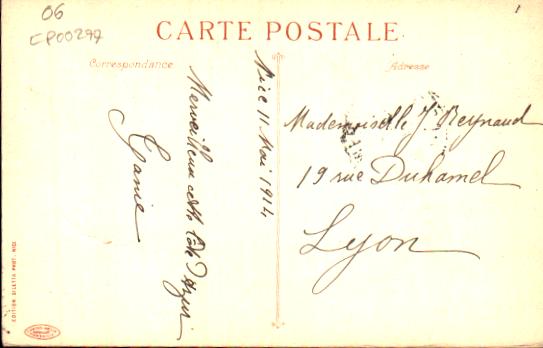 06
CP00297
1
CARTE POSTALE
Correspondance
Adresse
Nice 11 Mai 1914
Merveilleux cette Côte D'azur
Mademoiselle J. Reynaud
19 rue Duhamel
Lyon
EDITION GILETTA PHOT. NICE